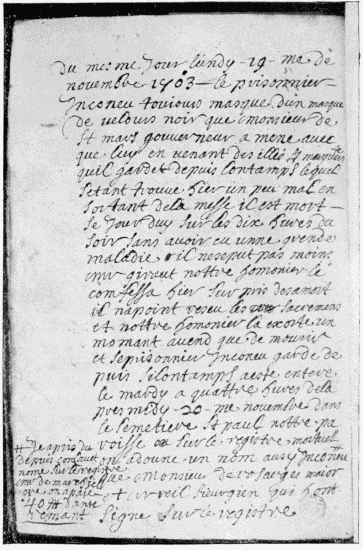 du mesme jour lundy - 19 - me de
novembre 1703 - le prisonnier
Inconeu toujours masque dun masque
de velours noir que monsieur de
st mars gouverneur a mene avec
que luy en venant des illes st marguerite
quil gardet depuis lontamps lequel
setant trouve hier un peu mal en
sortant de la messe il est mort
ce jour duy sur les dix hures du
soir sans avoir eu unne grende
maladie il ne se put pas moins
mr giraut nottre homonier le
comfessa hier surpris de sa mort
il na point reseu les sacremens
et nottre homonier la exorte un
momant avend que de mourir
et se prisonnier Inconeu garde de
puis si lontamps a este entere
le mardy a quattre hures de la
pres midy - 20 - me novembre dans
le semetiere st paul nottre pa
roisse sur le registre mortuel
on a donne un nom ausy Inconeu
que monsieur de rosarges maior
et arreil sieurgien qui hont
signe sur le registre
# Je apris du
depuis con lavet
nome sur le registre
mr de marchiel
que on a paie
40 # dant
remant